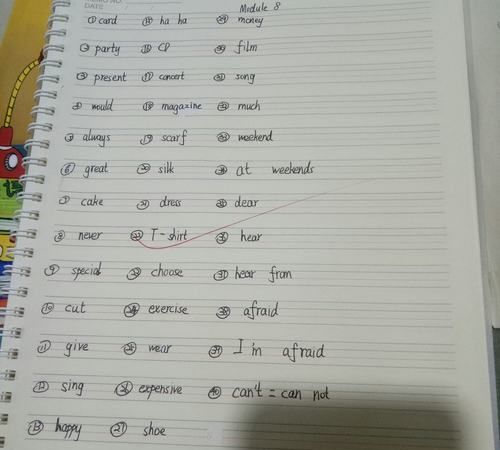 DATE
Module 8
① card
② party
③ present
④ would
⑤ always
⑥ great
⑦ cake
⑧ never
⑨ special
⑩ cut
⑪ give
⑫ sing
⑬ happy
⑮ ha ha
⑯ CD
⑰ concert
⑱ magazine
⑲ scarf
⑳ silk
㉑ dress
㉒ T-shirt
㉓ choose
㉔ exercise
㉕ wear
㉖ expensive
㉗ shoe
㉙ money
㉚ film
㉛ song
㉜ much
㉝ weekend
㉞ at weekends
㉟ dear
㊱ hear
㊲ hear from
㊳ afraid
㊴ I'm afraid
㊵ can't = can not